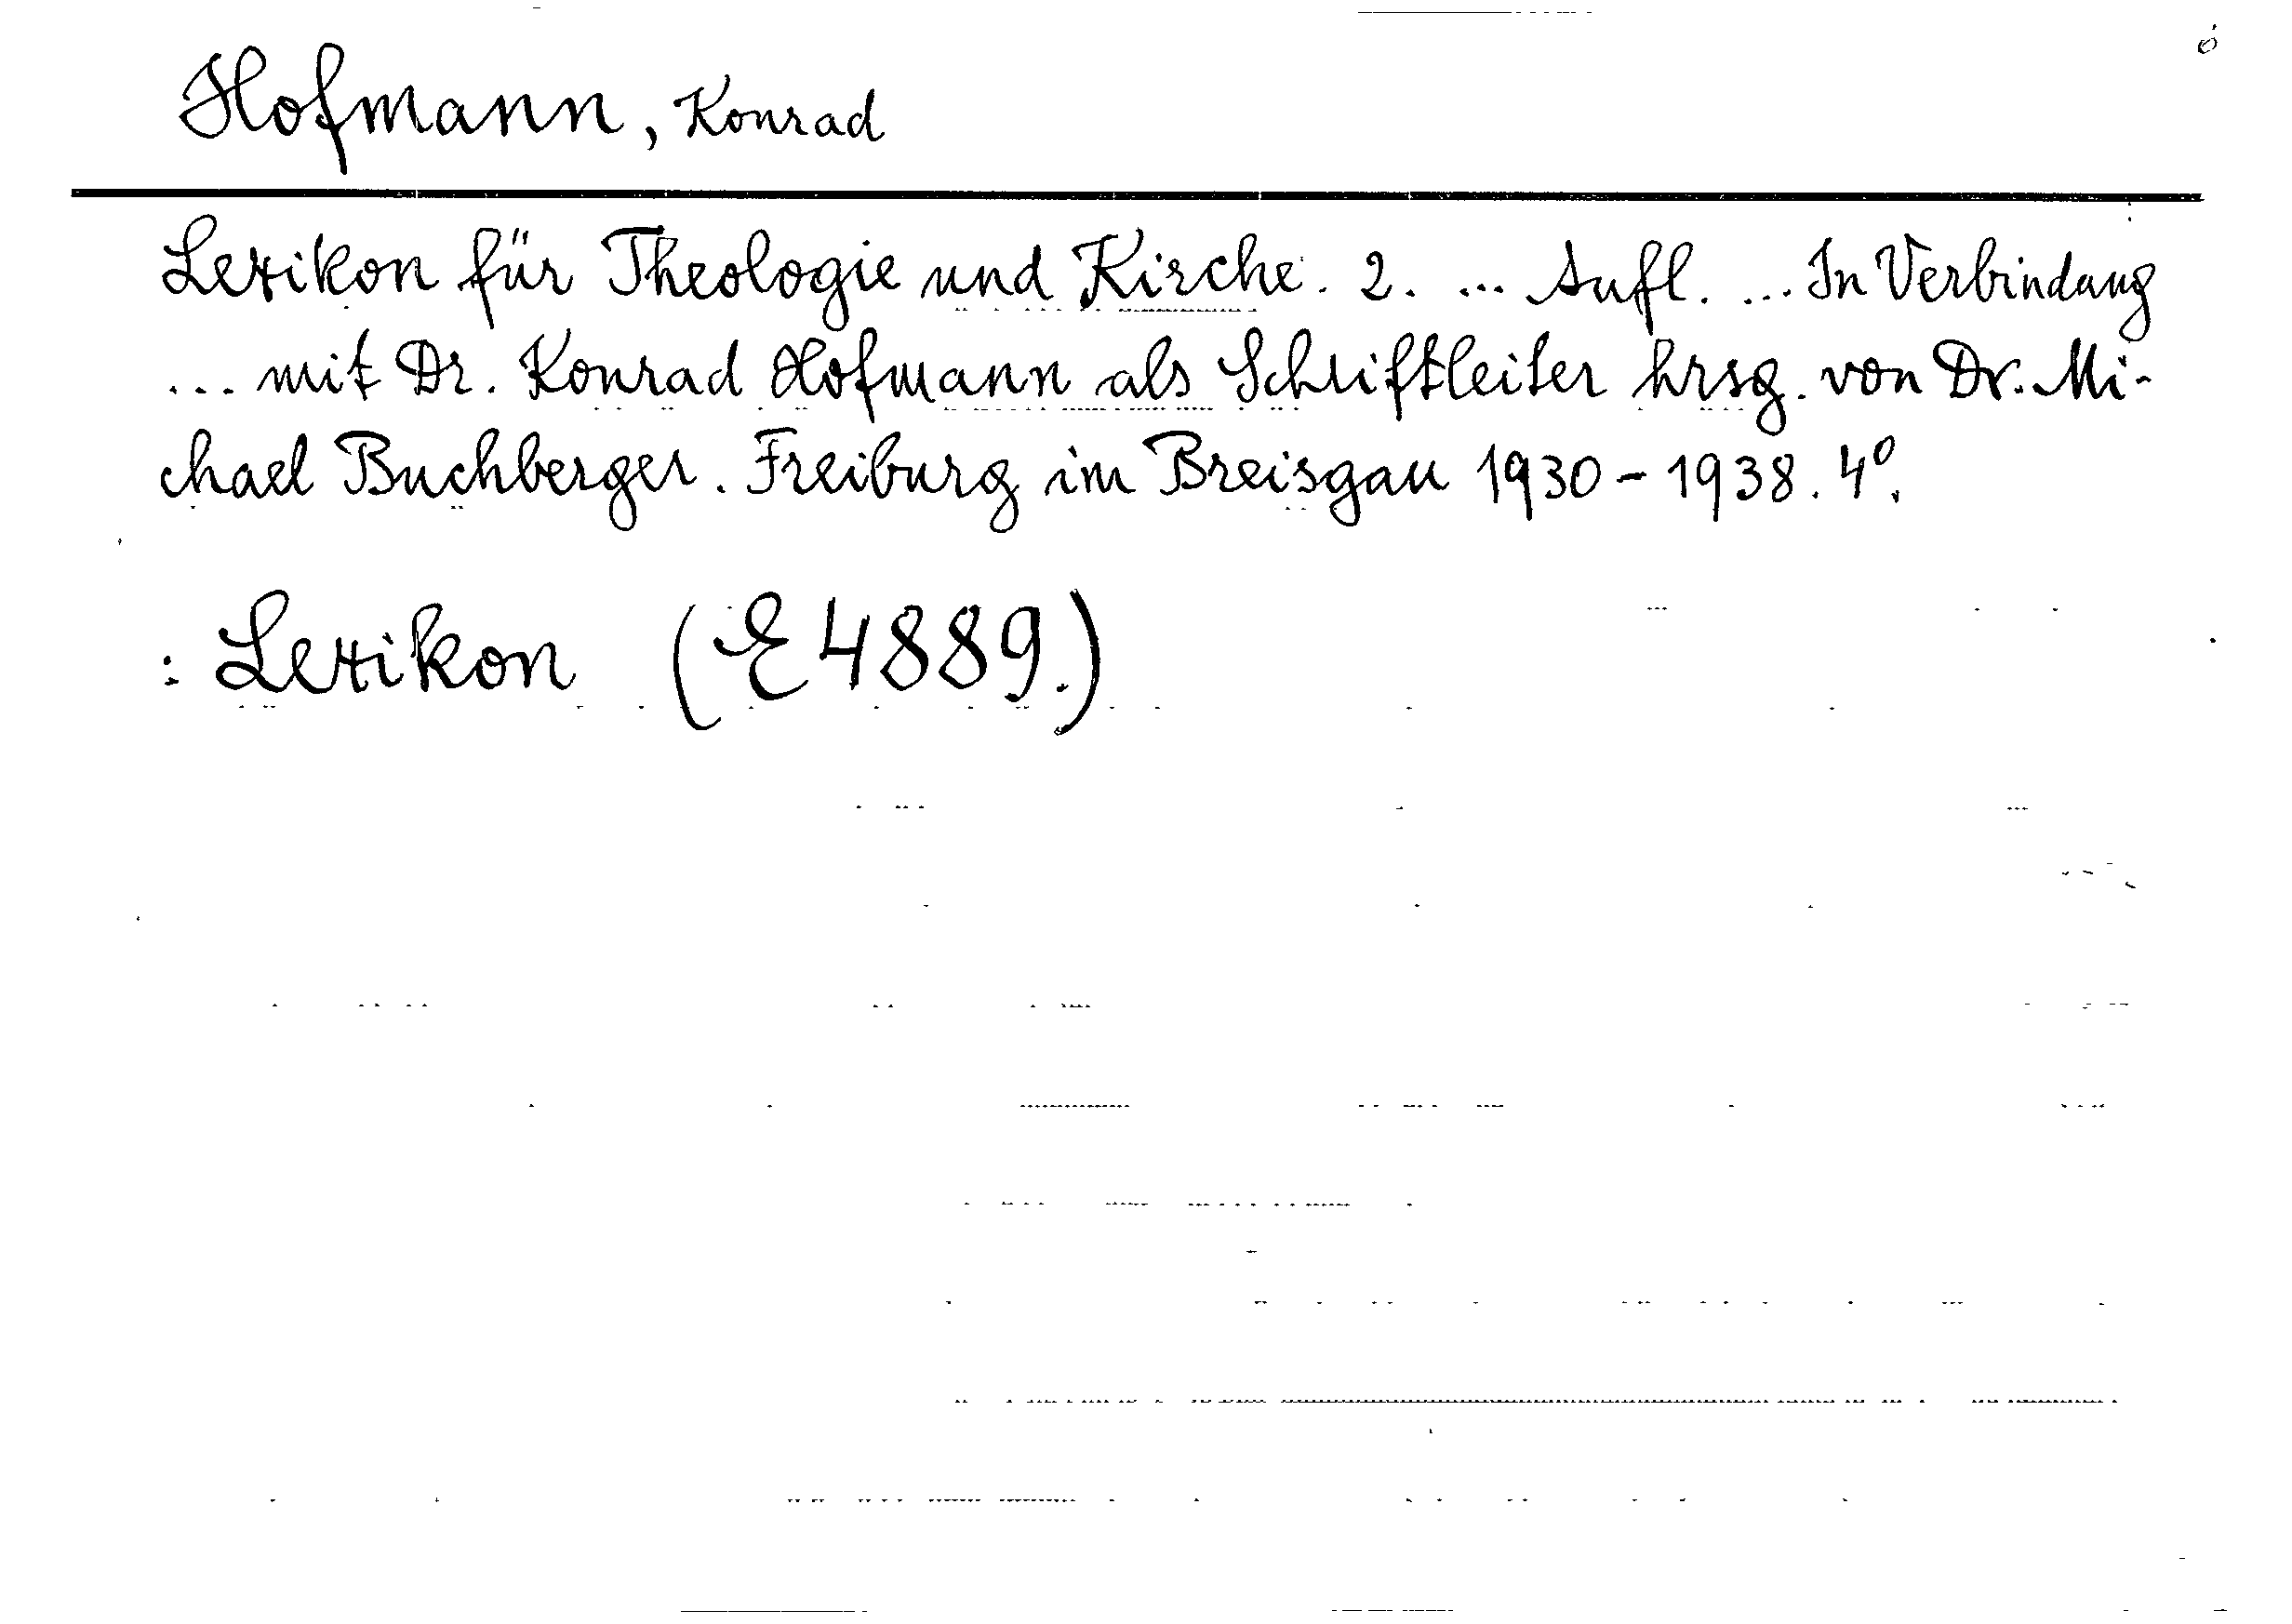 Hofmann, Konrad
Lexikon für Theologie und Kirche. 2. ... Aufl. ... In Verbindung
... mit Dr. Konrad Hofmann als Schriftleiter hrsg. von Dr. Mi-
chael Buchberger. Freiburg im Breisgau 1930 - 1938. 4º.
: Lexikon (E 4889.)